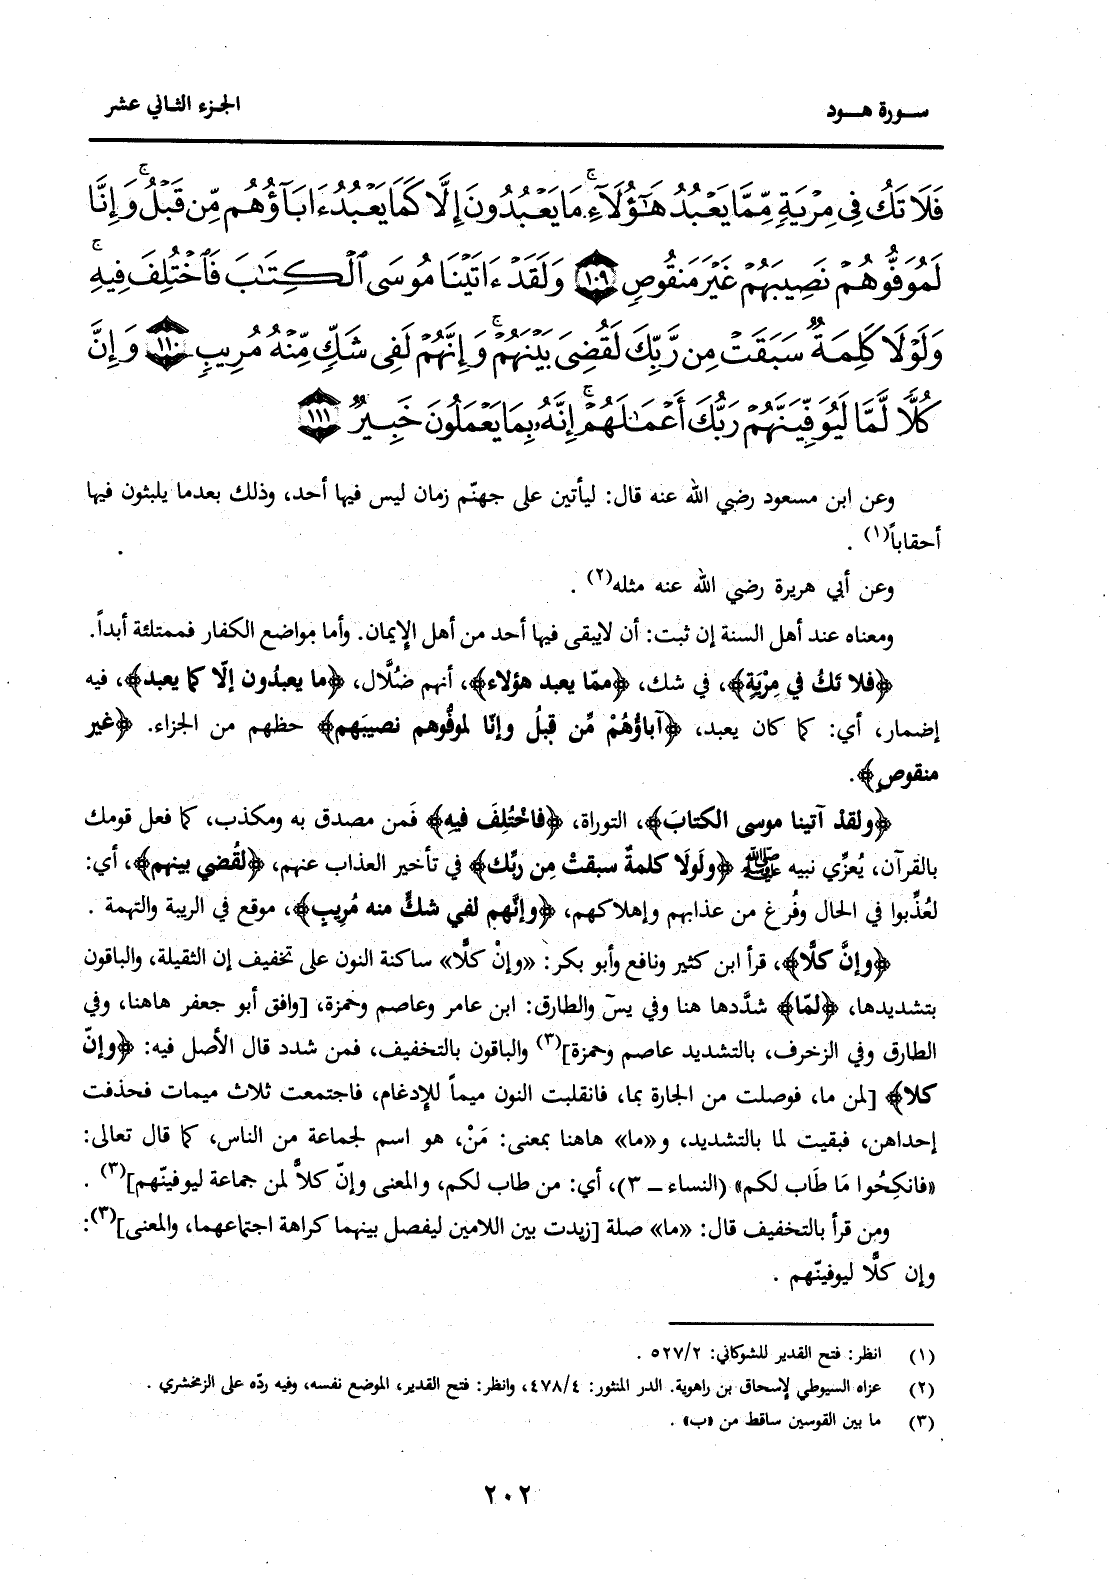 سورة هود
الجزء الثاني عشر
فَلَا تَكُ فِى مِرْيَةٍ مِّمَّا يَعْبُدُ هَٰٓؤُلَآءِ ۚ مَا يَعْبُدُونَ إِلَّا كَمَا يَعْبُدُ ءَابَآؤُهُم مِّن قَبْلُ ۚ وَإِنَّا
لَمُوَفُّوهُمْ نَصِيبَهُمْ غَيْرَ مَنقُوصٍ ١٠٩ وَلَقَدْ ءَاتَيْنَا مُوسَى ٱلْكِتَٰبَ فَٱخْتُلِفَ فِيهِ ۚ
وَلَوْلَا كَلِمَةٌ سَبَقَتْ مِن رَّبِّكَ لَقُضِىَ بَيْنَهُمْ ۚ وَإِنَّهُمْ لَفِى شَكٍّ مِّنْهُ مُرِيبٍ ١١٠ وَإِنَّ
كُلًّا لَّمَّا لَيُوَفِّيَنَّهُمْ رَبُّكَ أَعْمَٰلَهُمْ ۚ إِنَّهُۥ بِمَا يَعْمَلُونَ خَبِيرٌ ١١١
وعن ابن مسعود رضي الله عنه قال: ليأتين على جهنّم زمان ليس فيها أحد، وذلك بعدما يلبثون فيها
أحقاباً(١) .
وعن أبي هريرة رضي الله عنه مثله(٢) .
ومعناه عند أهل السنة إن ثبت: أن لايبقى فيها أحد من أهل الإيمان. وأما مواضع الكفار فممتلئة أبداً.
﴿فلا تَكُ في مِرْيَةٍ﴾، في شك، ﴿ممّا يعبد هؤلاء﴾، أنهم ضُلَّال، ﴿ما يعبدُون إلّا كما يعبد﴾، فيه
إضمار، أي: كما كان يعبد، ﴿آباؤُهُمْ مِّن قبلُ وإنّا لموفُّوهم نصيبَهم﴾ حظهم من الجزاء. ﴿غير
منقوصٍ﴾.
﴿ولقدْ آتينا موسى الكتابَ﴾، التوراة، ﴿فاخْتُلِفَ فيهِ﴾ فَمن مصدق به ومكذب، كما فعل قومك
بالقرآن، يُعزِّي نبيه ﷺ ﴿ولَولَا كلمةٌ سبقتْ مِن ربِّك﴾ في تأخير العذاب عنهم، ﴿لقُضي بينهم﴾، أي:
لعُذِّبوا في الحال وفُرغ من عذابهم وإهلاكهم، ﴿وإنَّهم لفي شكٍّ منه مُرِيبٍ﴾، موقع في الريبة والتهمة .
﴿وإنَّ كلًّا﴾، قرأ ابن كثير ونافع وأبو بكر: «وإنْ كلًّا» ساكنة النون على تخفيف إن الثقيلة، والباقون
بتشديدها، ﴿لمّا﴾ شدَّدها هنا وفي يسۤ والطارق: ابن عامر وعاصم وحمزة، [وافق أبو جعفر هاهنا، وفي
الطارق وفي الزخرف، بالتشديد عاصم وحمزة](٣) والباقون بالتخفيف، فمن شدد قال الأصل فيه: ﴿وإنّ
كلا﴾ [لمن ما، فوصلت من الجارة بما، فانقلبت النون ميماً للإدغام، فاجتمعت ثلاث ميمات فحذفت
إحداهن، فبقيت لما بالتشديد، و«ما» هاهنا بمعنى: مَنْ، هو اسم لجماعة من الناس، كما قال تعالى:
«فانكِحُوا مَا طَاب لكم» (النساء – ٣)، أي: من طاب لكم، والمعنى وإنّ كلاًّ لمن جماعة ليوفينّهم](٣) .
ومن قرأ بالتخفيف قال: «ما» صلة [زيدت بين اللامين ليفصل بينهما كراهة اجتماعهما، والمعنى](٣):
وإن كلًّا ليوفينّهم .
(١) انظر: فتح القدير للشوكاني: ٥٢٧/٢ .
(٢) عزاه السيوطي لإسحاق بن راهوية. الدر المنثور: ٤٧٨/٤، وانظر: فتح القدير، الموضع نفسه، وفيه ردّه على الزمخشري .
(٣) ما بين القوسين ساقط من «ب» .
٢٠٢